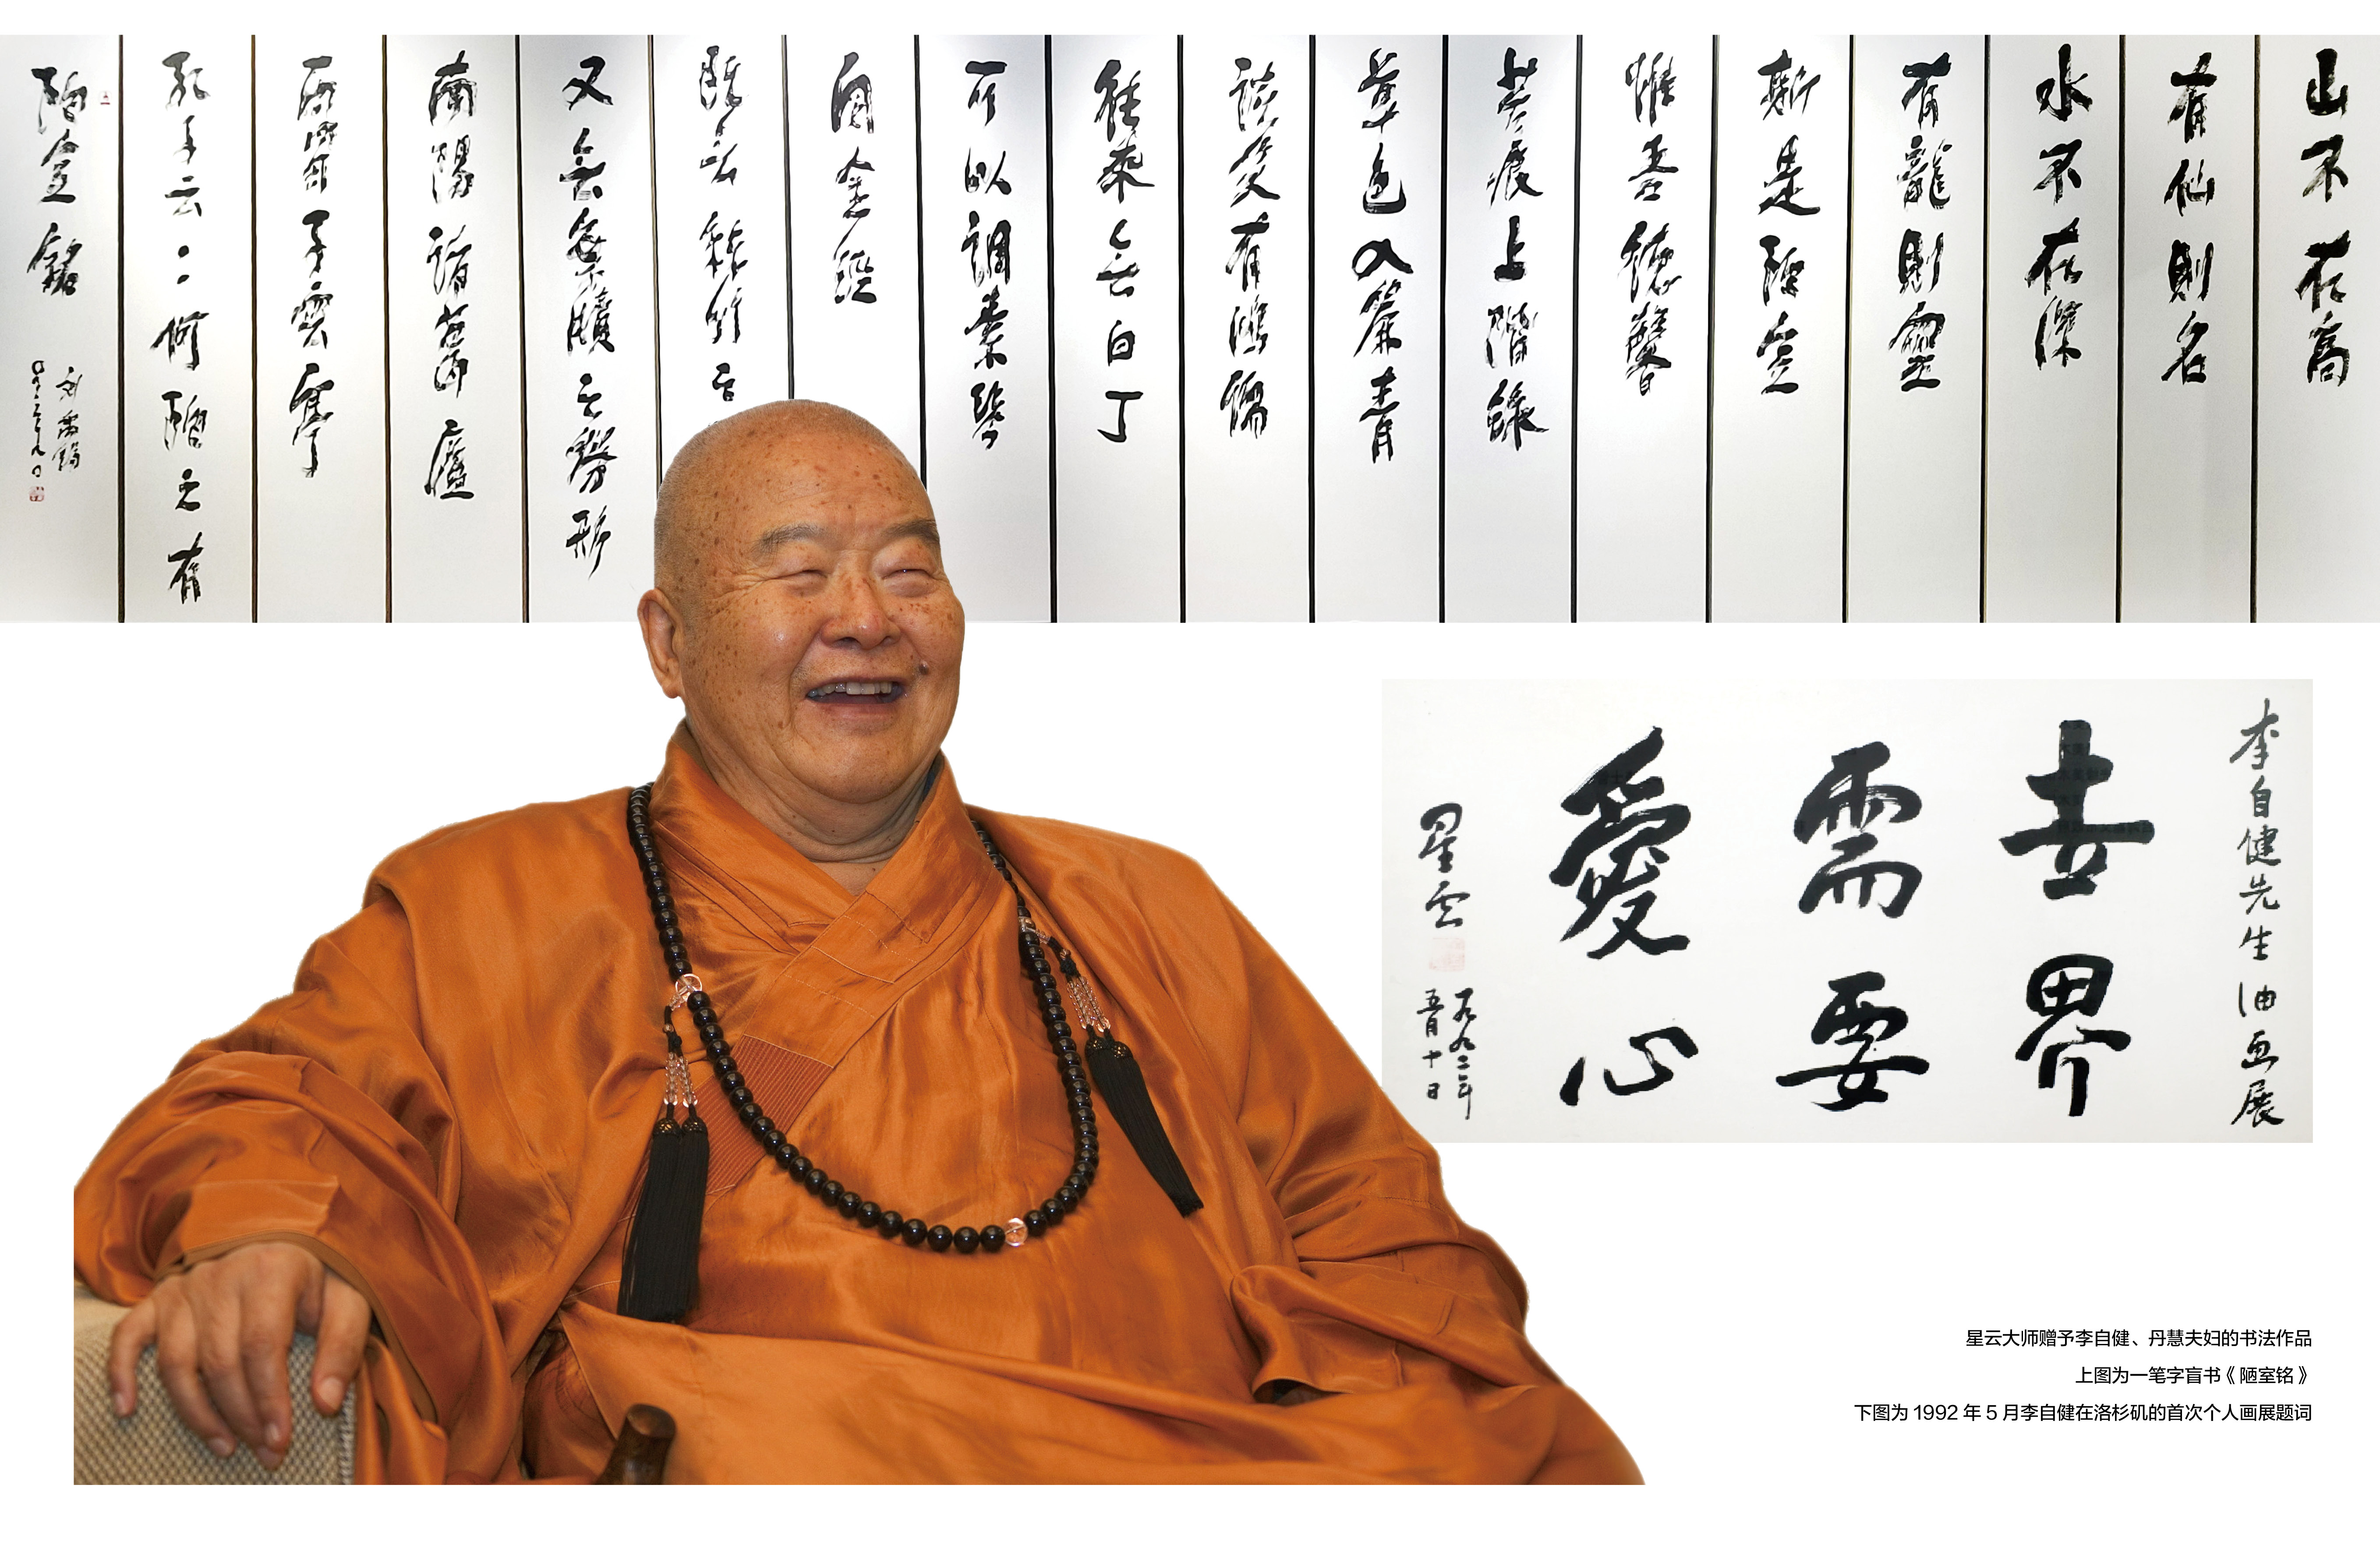 山不在高
有仙則名
水不在深
有龍則靈
斯是陋室
惟吾德馨
苔痕上階綠
草色入簾青
談笑有鴻儒
往來無白丁
可以調素琴
閱金經
既無絲竹
又無案牘之勞形
南陽諸葛廬
西蜀子雲亭
孔子云：何陋之有
陋室銘
劉禹錫
李自健先生油画展
世界
需要
愛心
星云
一九九二年
五月十日
星云大师赠予李自健、丹慧夫妇的书法作品
上图为一笔字盲书《陋室铭》
下图为1992年5月李自健在洛杉矶的首次个人画展题词